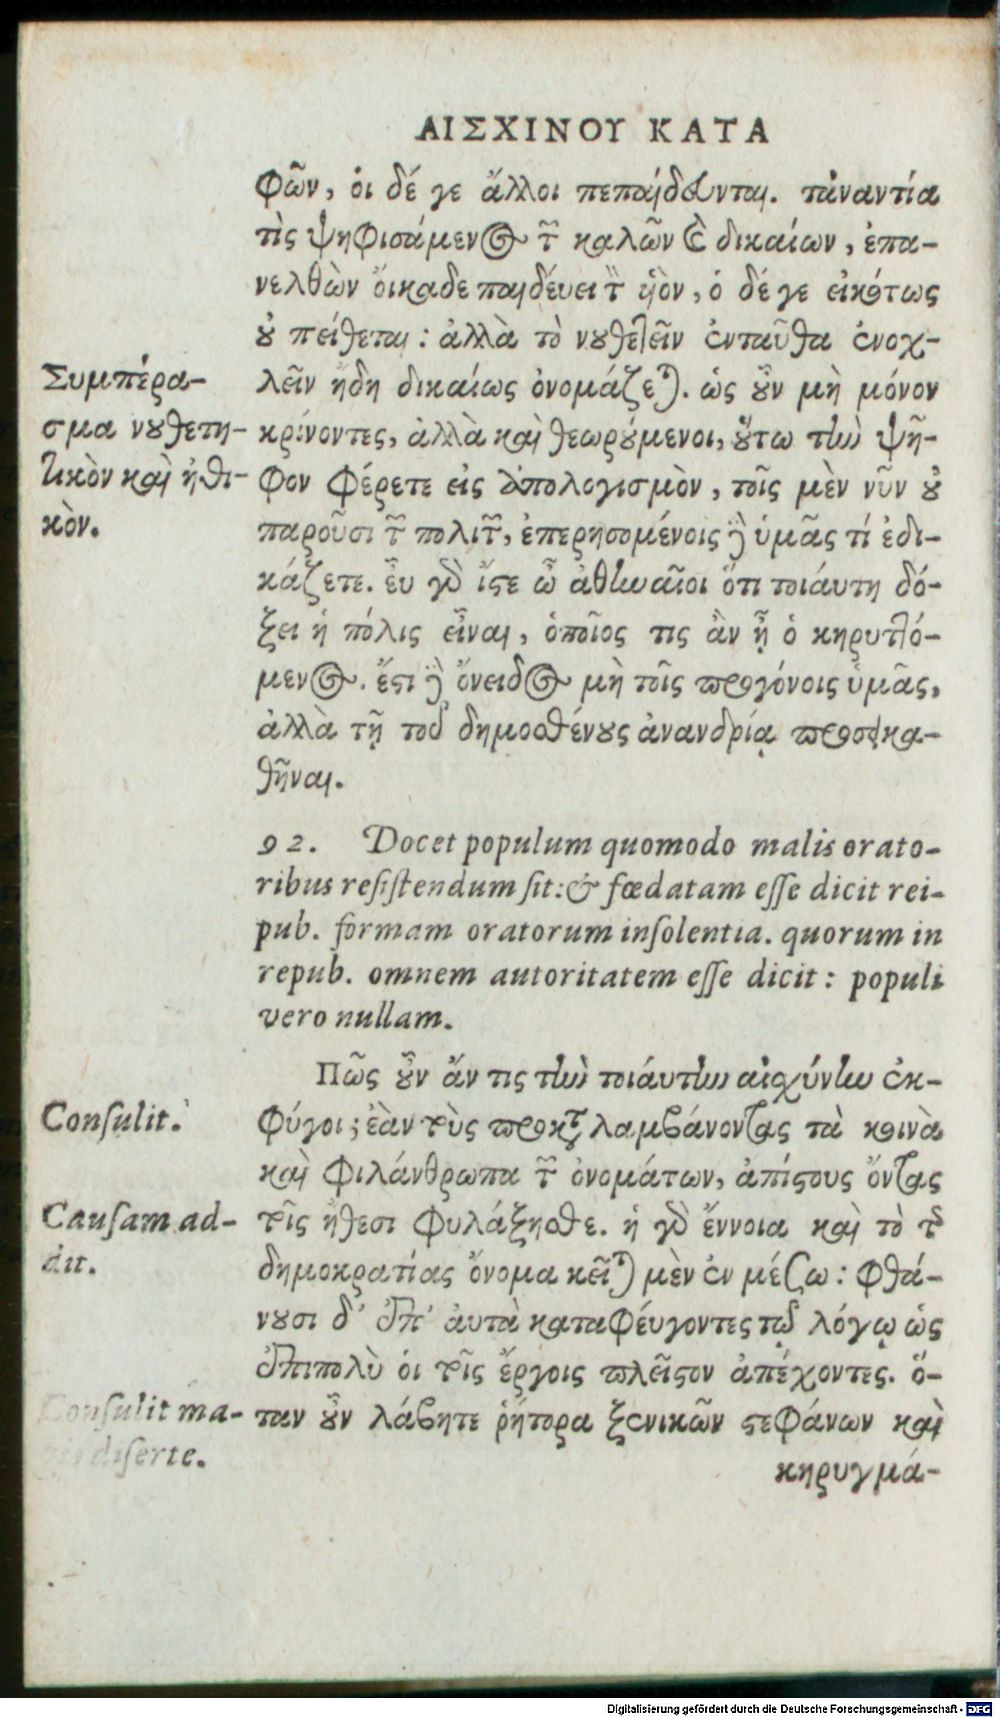 ΑΙΣΧΙΝΟΥ ΚΑΤΑ
φῶν, οἱ δέ γε ἄλλοι πεπαίδευνται. τἀναντία
τὶς ψηφισάμενος τῶν καλῶν καὶ δικαίων, ἐπα-
νελθὼν ὄικαδε παιδέυει τὸν ὑὸν, ὁ δέ γε εἰκότως
οὐ πείθεται: ἀλλὰ τὸ νουθετεῖν ἐνταῦθα ἐνοχ-
λεῖν ἤδη δικαίως ὀνομάζεται. ὡς οὖν μὴ μόνον
κρίνοντες, ἀλλὰ καὶ θεωρούμενοι, οὕτω τὴν ψῆ-
φον φέρετε εἰς ἀπολογισμὸν, τοῖς μὲν νῦν οὐ
παροῦσι τῶν πολιτῶν, ἐπερησομένοις δὲ ὑμᾶς τί ἐδι-
κάζετε. ἐυ γὰρ ἴστε ὦ ἀθηναῖοι ὅτι τοιάυτη δό-
ξει ἡ πόλις εἶναι, ὁποῖος τις ἂν ᾖ ὁ κηρυττό-
μενος. ἔστι δὲ ὄνειδος μὴ τοῖς προγόνοις ὑμᾶς,
ἀλλὰ τῇ τοῦ δημοσθένους ἀνανδρίᾳ προσεικα-
θῆναι.
Συμπέρα-
σμα νουθετη-
τικὸν καὶ ἠθι-
κὸν.
92. Docet populum quomodo malis orato-
ribus resistendum sit: & fœdatam esse dicit rei-
pub. formam oratorum insolentia. quorum in
repub. omnem autoritatem esse dicit: populi
vero nullam.
Πῶς οὖν ἄν τις τὴν τοιάυτην αἰσχύνην ἐκ-
φύγοι; ἐὰν τοὺς προκαταλαμβάνοντας τὰ κοινὰ
καὶ φιλάνθρωπα τῶν ὀνομάτων, ἀπίστους ὄντας
τοῖς ἤθεσι φυλάξησθε. ἡ γὰρ ἔννοια καὶ τὸ τῆς
δημοκρατίας ὄνομα κεῖται μὲν ἐν μέσω: φθά-
νουσι δ᾽ ἐπ᾽ ἀυτὰ καταφέυγοντες τῷ λόγῳ ὡς
ἐπιπολὺ ὁι τοῖς ἔργοις πλεῖστον ἀπέχοντες. ὅ-
ταν οὖν λάβητε ῥήτορα ξενικῶν στεφάνων καὶ
κηρυγμά-
Consulit.
Causam ad-
dit.
Consulit ma-
diserte.
Digitalisierung gefördert durch die Deutsche Forschungsgemeinschaft - DFG